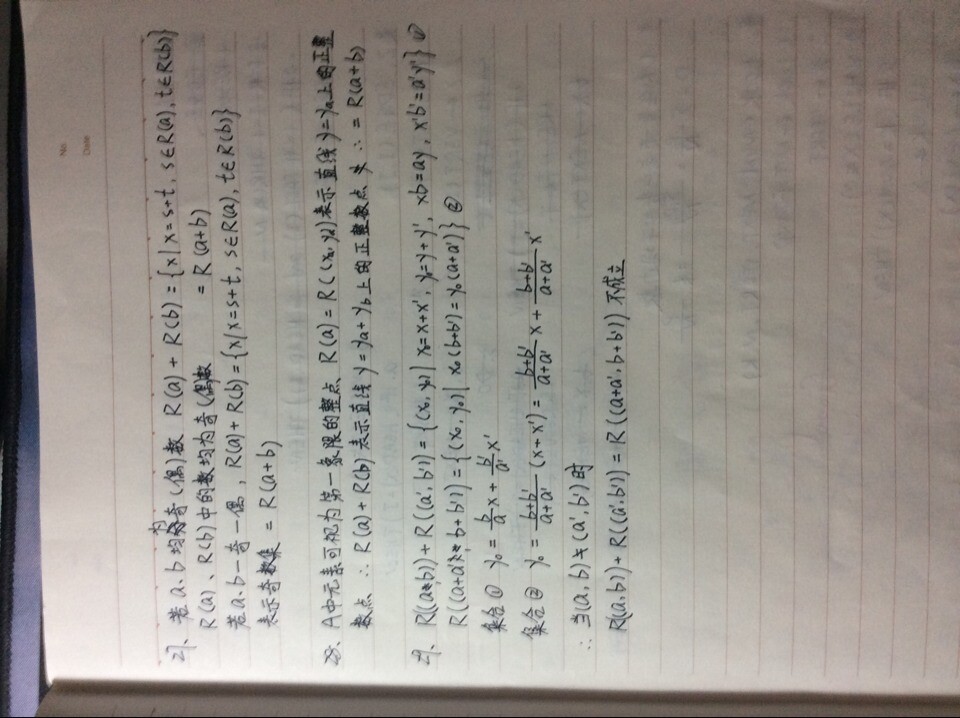 No.
Date
27、若a、b均为奇(偶)数 R(a) + R(b) = {x|x=s+t, s∈R(a), t∈R(b)}
R(a)、R(b)中的数均为奇(偶)数 = R(a+b)
若a、b一奇一偶, R(a)+R(b)={x|x=s+t, s∈R(a), t∈R(b)}
表示奇数集 = R(a+b)
28、A中元素可视为第一象限的整点 R(a) = R((xₐ, yₐ))表示直线y=yₐ上的正整
数点 ∴ R(a)+R(b) 表示直线 y=yₐ+y_b 上的正整数点 ∴ = R(a+b)
29、R((a,b)) + R((a',b')) = {(x₀, y₀)| x₀=x+x', y₀=y+y', xb=ay, x'b'=a'y'} ①
R((a+a', b+b')) = {(x₀, y₀)| x₀(b+b')=y₀(a+a')} ②
集合① y₀ = b/a x + b'/a' x'
集合② y₀ = b+b'/a+a' (x+x') = b+b'/a+a' x + b+b'/a+a' x'
∴ 当(a,b)≠(a',b')时
R((a,b)) + R((a',b')) = R((a+a', b+b')) 不成立